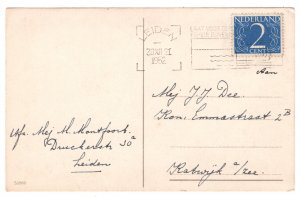 LEIDEN
1952
NEDERLAND
2
CENT
Aan
Mej J.J. Dee.
Kon. Emmastraat 2B
Katwijk a/zee.
Afz. Mej M. Montfoort.
Druckerstr 30a
Leiden